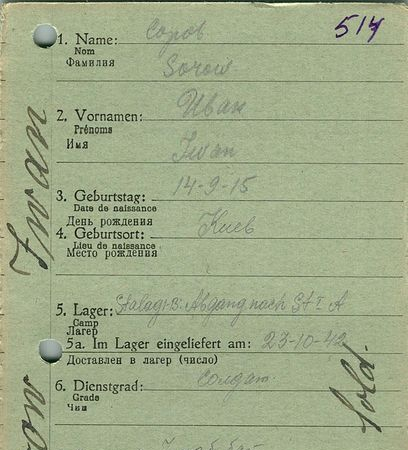 514
1. Name: Соров
Nom
Фамилия
Sorow
2. Vornamen: Иван
Prénoms
Имя
Iwan
3. Geburtstag: 14-9-15
Date de naissance
День рождения
4. Geburtsort: Киев
Lieu de naissance
Место рождения
5. Lager: Stalag I-B. Abgang nach St I A
Camp
Лагерь
5a. Im Lager eingeliefert am: 23-10-42
Доставлен в лагер (число)
6. Dienstgrad: солдат
Grade
Чин
Iwan
Sold.